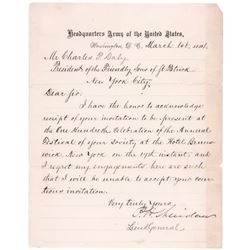 Headquarters Army of the United States,
Washington, D.C. March 1st, 1884.
Mr Charles P. Daly,
President of the Friendly Sons of St Patrick
New York City.
Dear Sir:
I have the honor to acknowledge
receipt of your invitation to be present at
the One Hundredth Celebration of the Annual
Festival of your Society at the Hotel Bruns-
wick New York on the 17th instant, and
I regret my engagements here are such
that I will be unable to accept your cour-
teous invitation.
Very truly Yours,
P. H. Sheridan
Lieut General